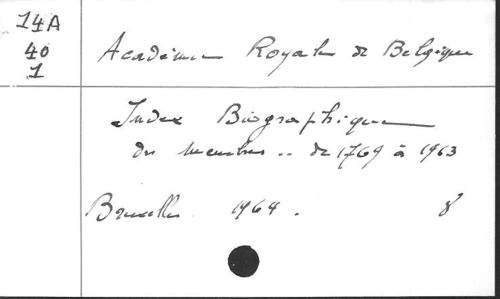 14A
40
1
Académie Royale de Belgique
Index Biographique
des membres .. de 1769 à 1963
Bruxelles 1964. 8